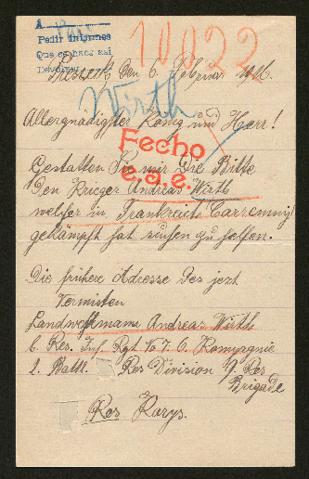 A
Paris
Pedir informes
Devolver
10022
den 6. Februar 1916.
Wirth
Allergnädigster König und Herr!
Fecho
e.s.e.
Gestatten Sie mir die Bitte
Den Krieger Andreas Wirth
welcher in Frankreich
gekämpft hat suchen zu helfen.
Die frühere Adresse des jezt
Vermisten
Landwehrmann Andreas Wirth
6. Res. Inf. Rgt. No 7. 6. Kompagnie
2. Battl. Res Division 9. Res
Brigade
Res Korps.